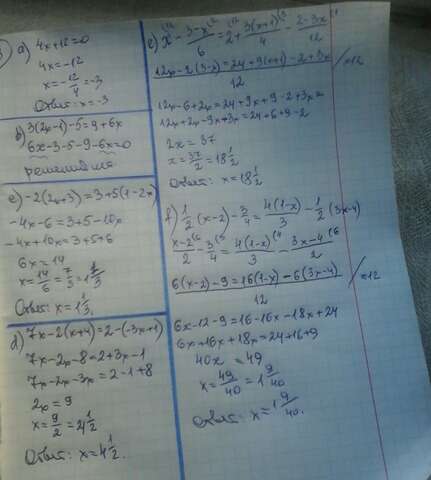 a) 4x+12=0
4x=-12
x=-12/4=-3
Ответ: x=-3
b) 3(2x-1)-5=9+6x
6x-3-5-9-6x=0
c) -2(2x+3)=3+5(1-2x)
-4x-6=3+5-10x
-4x+10x=3+5+6
6x=14
x=14/6=7/3=1 1/3
Ответ: x=1 1/3.
d) 7x-2(x+4)=2-(-3x+1)
7x-2x-8=2+3x-1
7x-2x-3x=2-1+8
2x=9
x=9/2=4 1/2
Ответ: x=4 1/2.
e) x-(3-x)/6=2+3(x+1)/4-(2-3x)/12
(12x-2(3-x)=24+9(x+1)-2+3x)/12 /×12
12x-6+2x=24+9x+9-2+3x=
12x+2x-9x+3x=24+6+9-2
2x=37
x=37/2=18 1/2
Ответ: x=18 1/2
f) 1/2(x-2)-3/4=4(1-x)/3-1/2(3x-4)
(x-2)/2-3/4=4(1-x)/3-(3x-4)/2
(6(x-2)-9=16(1-x)-6(3x-4))/12 /×12
6x-12-9=16-16x-18x+24
6x+16x+18x=24+16+9
40x=49
x=49/40=1 9/40
Ответ: x=1 9/40.